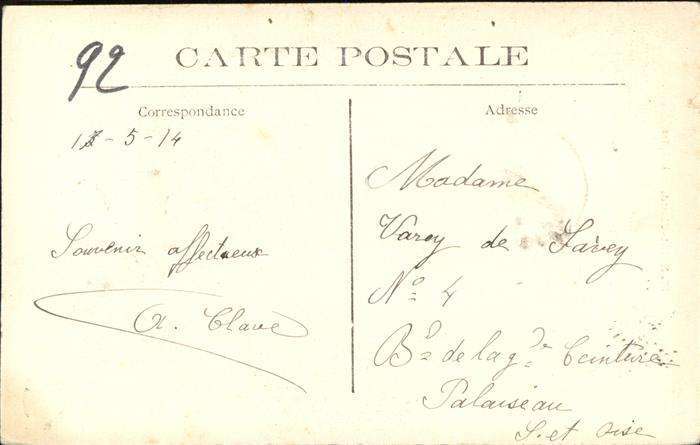 92
CARTE POSTALE
Correspondance
Adresse
12-5-14
Souvenir affectueux
A. Clavé
Madame
Varey de Favey
Nº 4
Bd de la gde Ceinture
Palaiseau
S. et oise